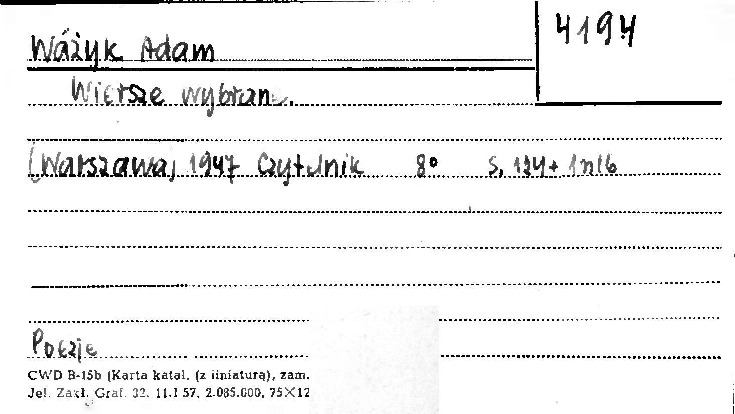 4194
Ważyk Adam
Wiersze wybrane.
[Warszawa] 1947 Czytelnik 8° s. 124 + 1 nlb
Poezje
CWD B-15b (Karta katal. (z liniaturą), zam.
Jel. Zakł. Graf. 32. 11.I 57. 2.085.000, 75×12